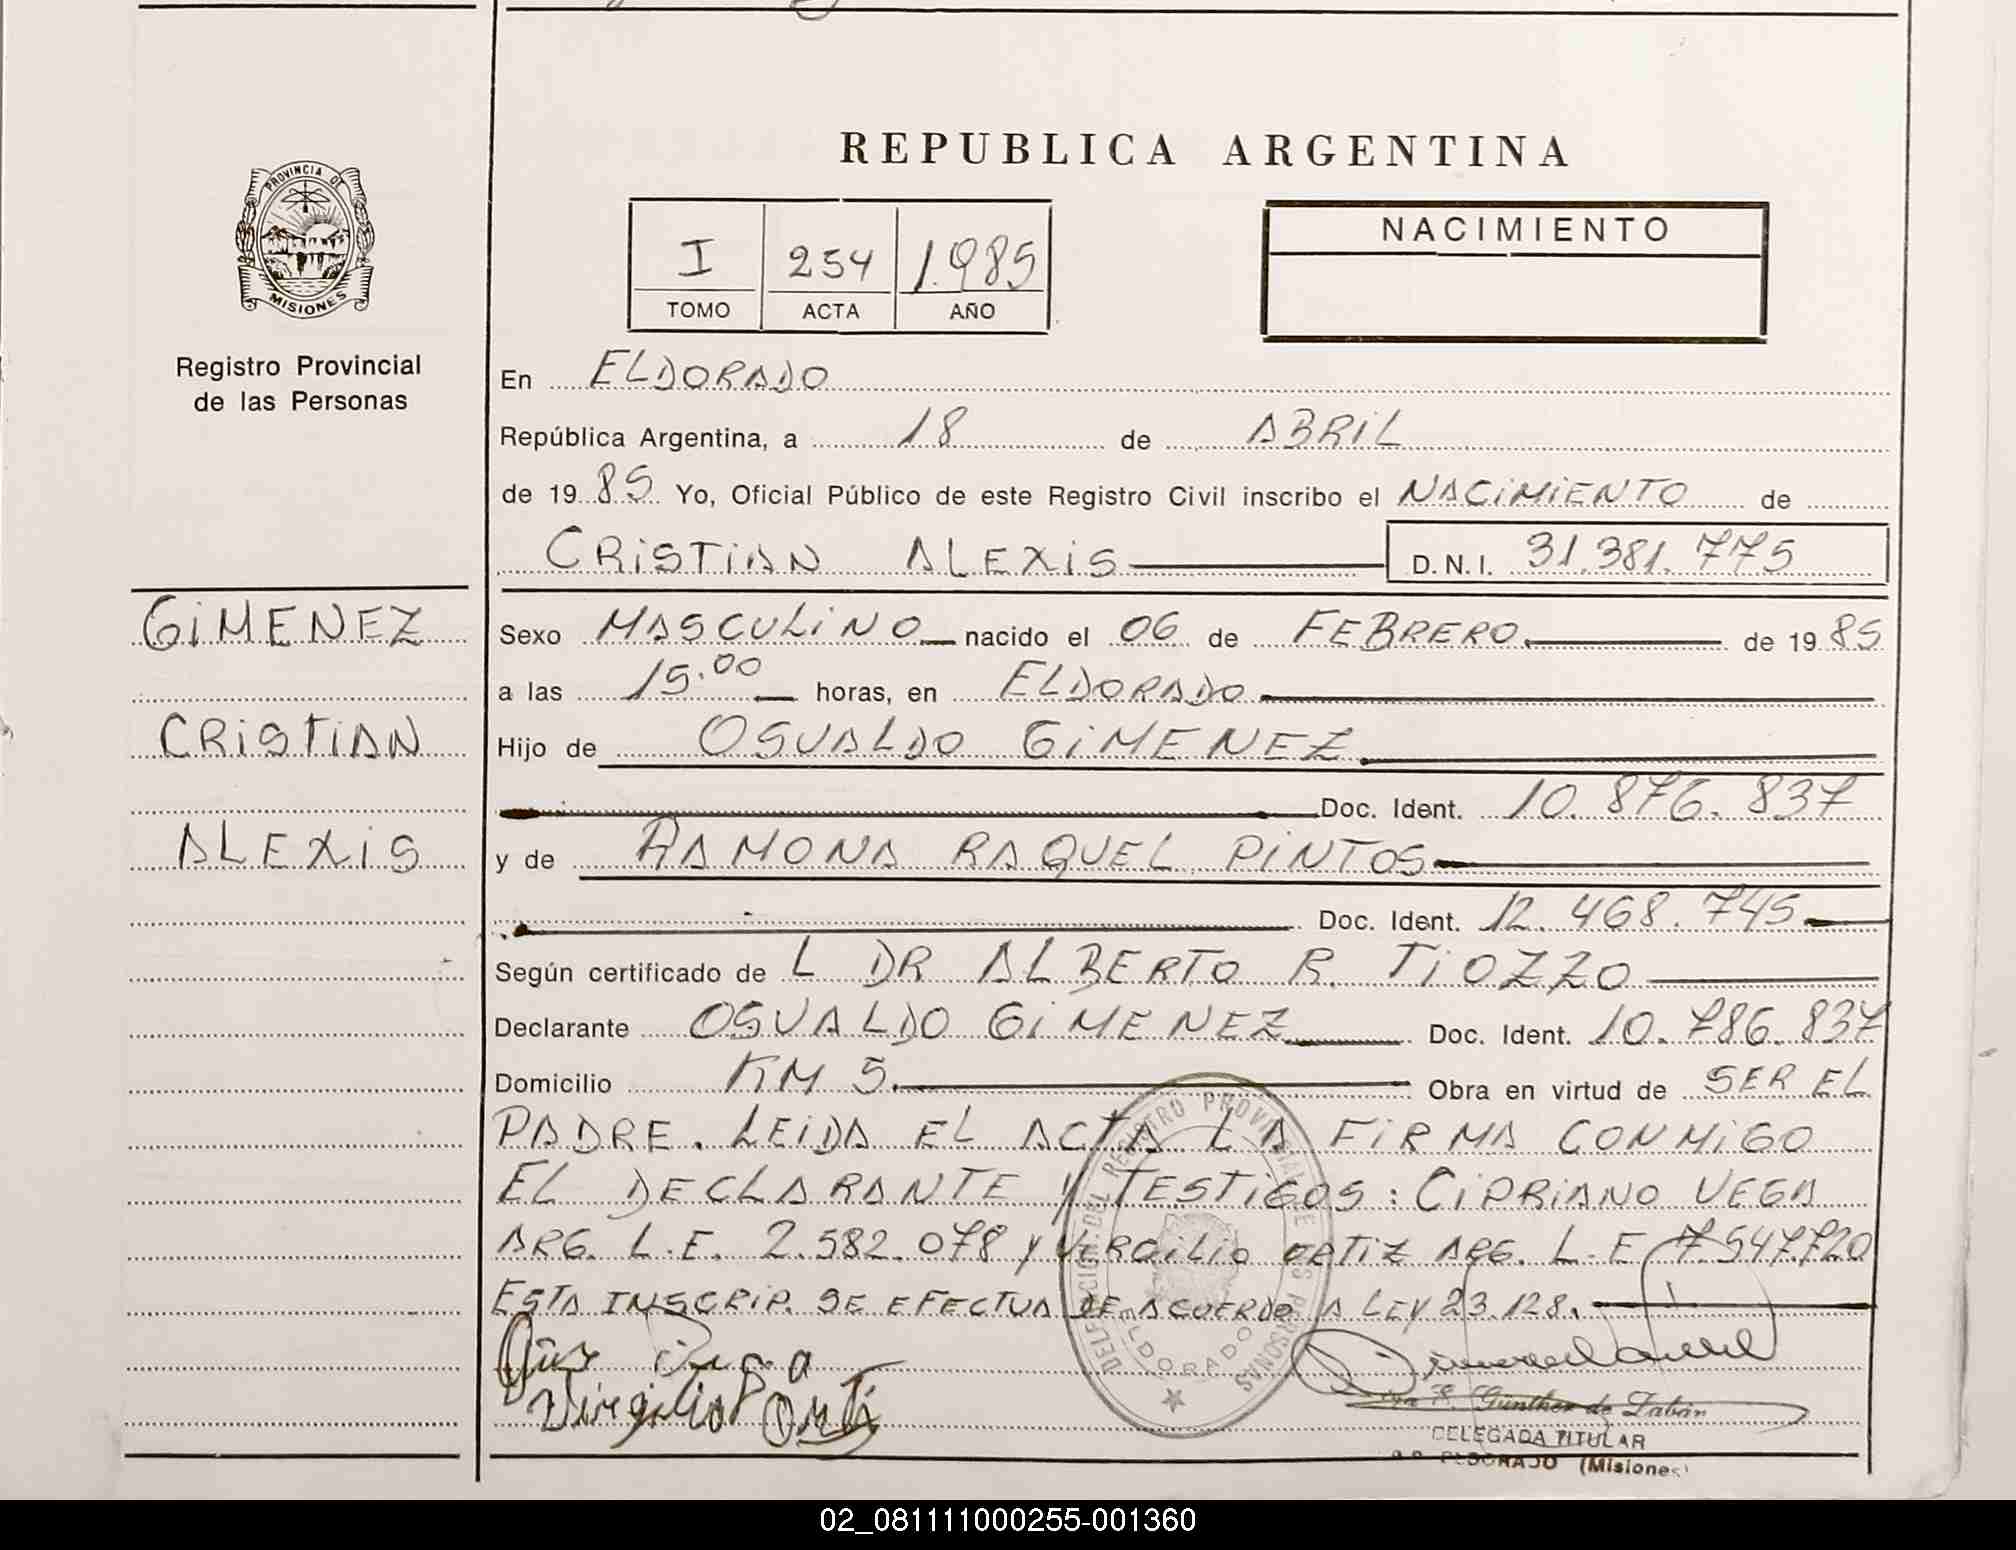 REPUBLICA ARGENTINA
PROVINCIA DE
MISIONES
Registro Provincial
de las Personas
I 254 1.985
TOMO ACTA AÑO
NACIMIENTO
En ELDORADO
República Argentina, a 18 de ABRIL
de 1985 Yo, Oficial Público de este Registro Civil inscribo el NACIMIENTO de
CRISTIAN ALEXIS D.N.I. 31.381.775
GIMENEZ
CRISTIAN
ALEXIS
Sexo MASCULINO nacido el 06 de FEBRERO. de 1985
a las 15.00 horas, en ELDORADO
Hijo de OSVALDO GIMENEZ
Doc. Ident. 10.876.837
y de RAMONA RAQUEL PINTOS
Doc. Ident. 12.468.745
Según certificado de L DR ALBERTO R. TIOZZO
Declarante OSVALDO GIMENEZ Doc. Ident. 10.786.837
Domicilio KM 5. Obra en virtud de SER EL
PADRE. LEIDA EL ACTA LA FIRMA CONMIGO
EL DECLARANTE Y TESTIGOS: CIPRIANO VEGA
ARG. L.E. 2.582.078 y VIRGILIO ORTIZ ARG. L.E 7.547.720
ESTA INSCRIP. SE EFECTUA DE ACUERDO A LEY 23.128.
DELEGACION DEL REGISTRO PROVINCIAL DE LAS PERSONAS
ELDORADO
Virgilio Orti
Günther de Zabán
DELEGADA TITULAR
ELDORADO (Misiones)
02_081111000255-001360